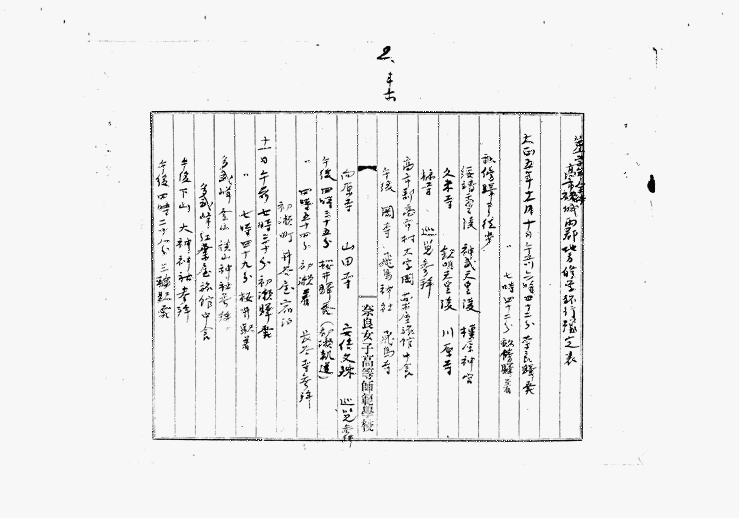 高市磯城両郡地方修学旅行予定表
大正五年五月十日午前六時四十二分奈良駅発
〃 七時四十二分畝傍駅着
畝傍駅ヨリ徒歩
綏靖天皇陵 神武天皇陵 橿原神宮
久米寺 欽明天皇陵 川原寺
橘寺 巡覧参拝
高市郡高市村大字岡 旅館中食
午後 岡寺 飛鳥神社 飛鳥寺
奈良女子高等師範學校
向原寺 山田寺 安倍文珠 巡覧参拝
午後四時三十五分桜井駅発(初瀬軌道)
〃 四時五十四分初瀬着 長谷寺参拝
初瀬町 井谷屋宿泊
十一日午前七時二十分初瀬駅発
〃 七時四十九分桜井駅着
多武峰登山 談山神社参拝
多武峰紅葉屋旅館中食
午後下山 大神神社参拝
午後四時二十八分三輪駅発